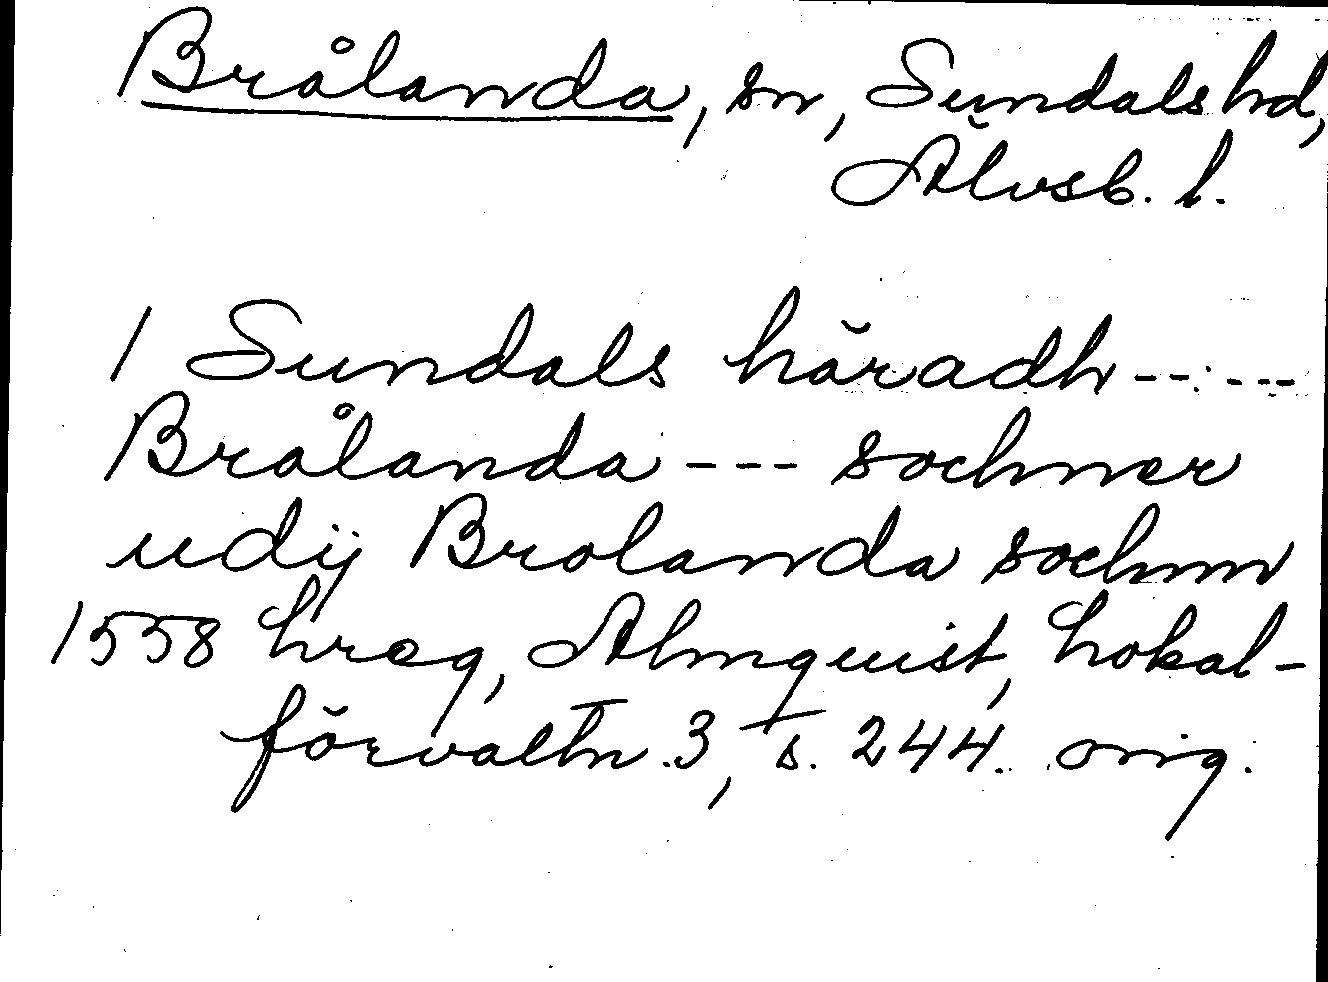 Brålanda, sn, Sundals hd,
Älvsb. l.
I Sundals häradh -----
Brålanda --- sochner
udÿ Brolanda sochnn
1558 hreg, Almquist, Lokal-
förvaltn. 3, s. 244. orig.